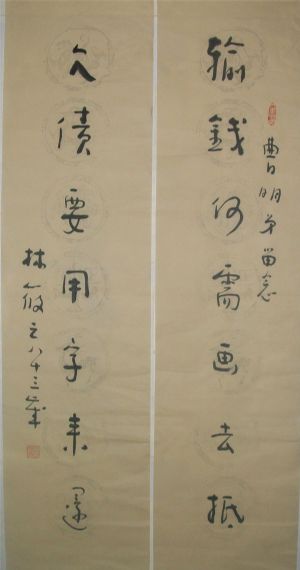 输钱何需画去抵
曹明弟留念
欠债要用字来还
林筱之八十三岁